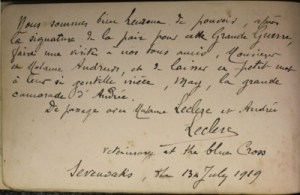 Nous sommes bien heureux de pouvoir, après
la signature de la paix pour cette Grande Guerre,
faire une visite à nos bons amis, Monsieur
et Madame Andrews, et de laisser un petit mot
à leur si gentille nièce, May, la grande
camarade d'André.
De passage avec Madame Leclerc et André
Leclerc
veterinary at the blue Cross
Sevenoaks, the 13th July 1919